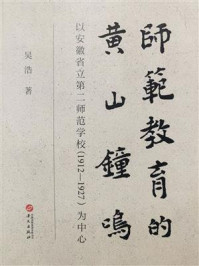 師範教育的
黃山鐘鳴
以安徽省立第二师范学校(1912—1927)为中心
吴浩 著